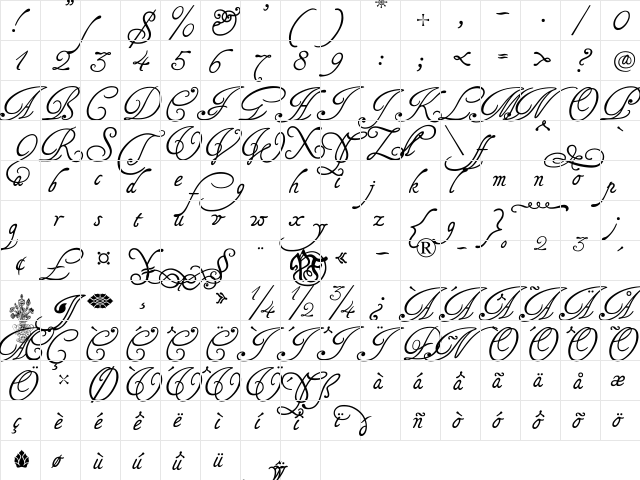 ! " / $ % & ' ( ) * + , - . / 0
1 2 3 4 5 6 7 8 9 : ; < = > ? @
A B C D E F G H I J K L M N O P
Q R S T U V W X Y Z \ ^ `
a b c d e f g h i j k l m n o p
q r s t u v w x y z { } 2 3
¢ £ ¤ ¥ § ¨ « ® °
» ¼ ½ ¾ ¿ À Á Â Ã Ä Å
Æ Ç È É Ê Ë Ì Í Î Ï Ð Ñ Ò Ó Ô Õ
Ö × Ø Ù Ú Û Ü ß à á â ã ä å æ
ç è é ê ë ì í î ï ñ ò ó ô õ ö
ø ù ú û ü ÿ